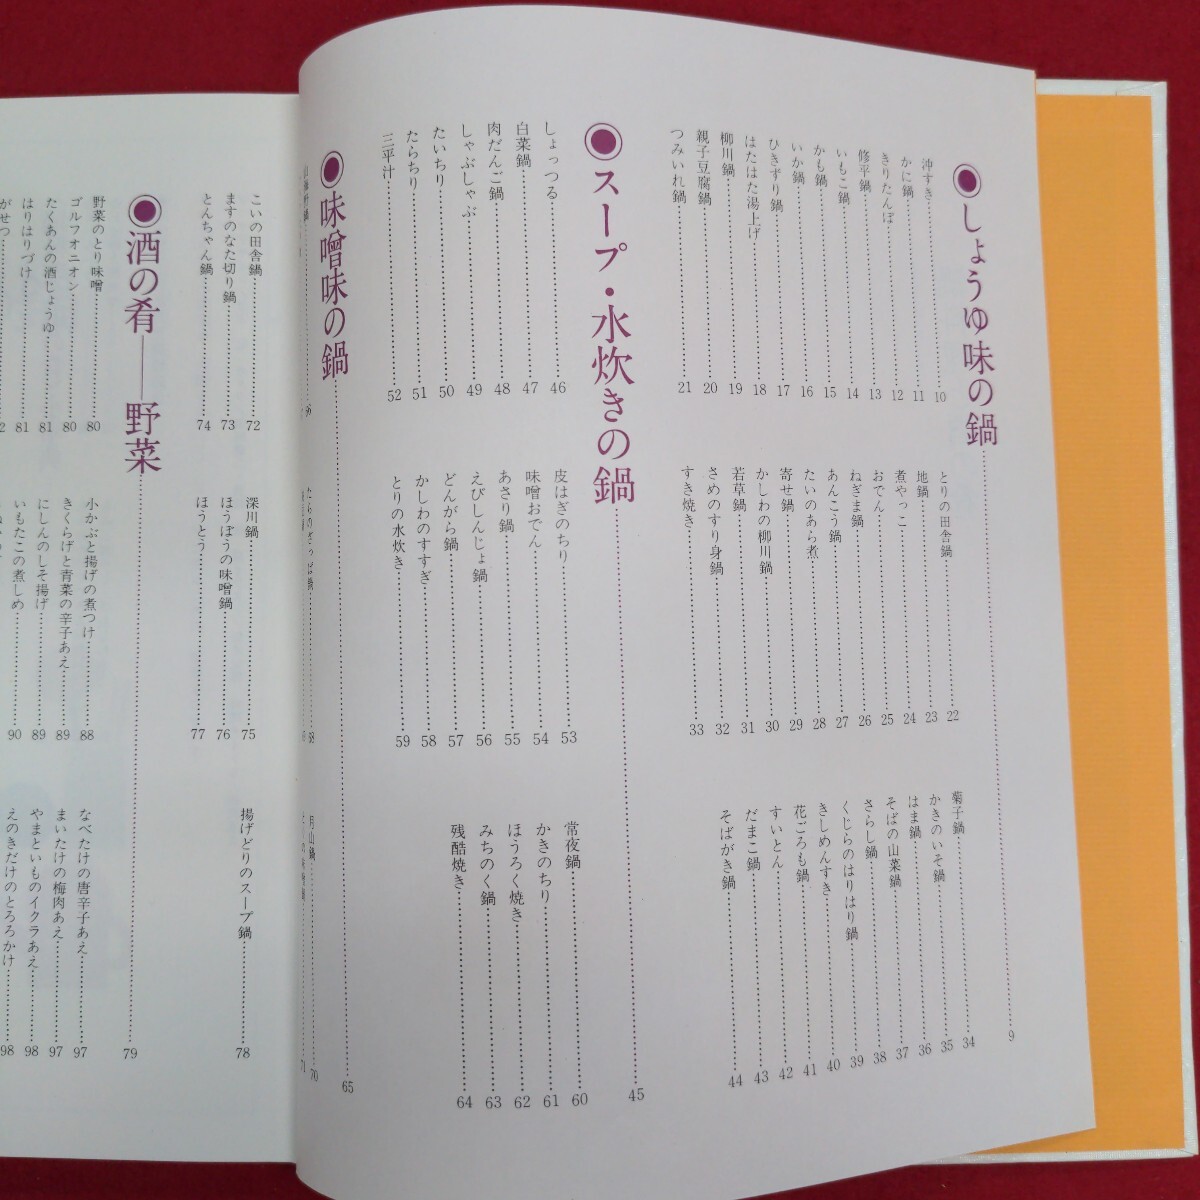 ●しょうゆ味の鍋 9
沖すき 10
かに鍋 11
きりたんぽ 12
修平鍋 13
いもこ鍋 14
かも鍋 15
いか鍋 16
ひきずり鍋 17
はたはた湯上げ 18
柳川鍋 19
親子豆腐鍋 20
つみいれ鍋 21
とりの田舎鍋 22
地鍋 23
煮やっこ 24
おでん 25
ねぎま鍋 26
あんこう鍋 27
たいのあら煮 28
寄せ鍋 29
かしわの柳川鍋 30
若草鍋 31
さめのすり身鍋 32
すき焼き 33
菊子鍋 34
かきのいそ鍋 35
はま鍋 36
そばの山菜鍋 37
さらし鍋 38
くじらのはりはり鍋 39
きしめんすき 40
花ごろも鍋 41
すいとん 42
だまこ鍋 43
そばがき鍋 44
●スープ・水炊きの鍋 45
しょっつる 46
白菜鍋 47
肉だんご鍋 48
しゃぶしゃぶ 49
たいちり 50
たらちり 51
三平汁 52
皮はぎのちり 53
味噌おでん 54
あさり鍋 55
えびしんじょ鍋 56
どんがら鍋 57
かしわのすすぎ 58
とりの水炊き 59
常夜鍋 60
かきのちり 61
ほうろく焼き 62
みちのく鍋 63
残酷焼き 64
●味噌味の鍋 65
月山鍋 70
71
こいの田舎鍋 72
ますのなた切り鍋 73
とんちゃん鍋 74
深川鍋 75
ほうぼうの味噌鍋 76
ほうとう 77
揚げどりのスープ鍋 78
●酒の肴──野菜 79
野菜のとり味噌 80
ゴルフオニオン 80
たくあんの酒じょうゆ 81
はりはりづけ 81
小かぶと揚げの煮つけ 88
きくらげと青菜の辛子あえ 89
にしんのしそ揚げ 89
いもたこの煮しめ 90
なべたけの唐辛子あえ 97
まいたけの梅肉あえ 97
やまといものイクラあえ 98
えのきだけのとろろかけ 98